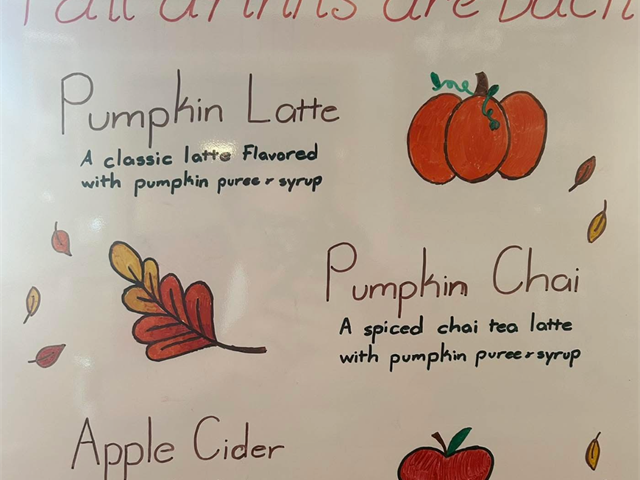 Fall drinks are back
Pumpkin Latte
A classic latte flavored
with pumpkin puree & syrup
Pumpkin Chai
A spiced chai tea latte
with pumpkin puree & syrup
Apple Cider